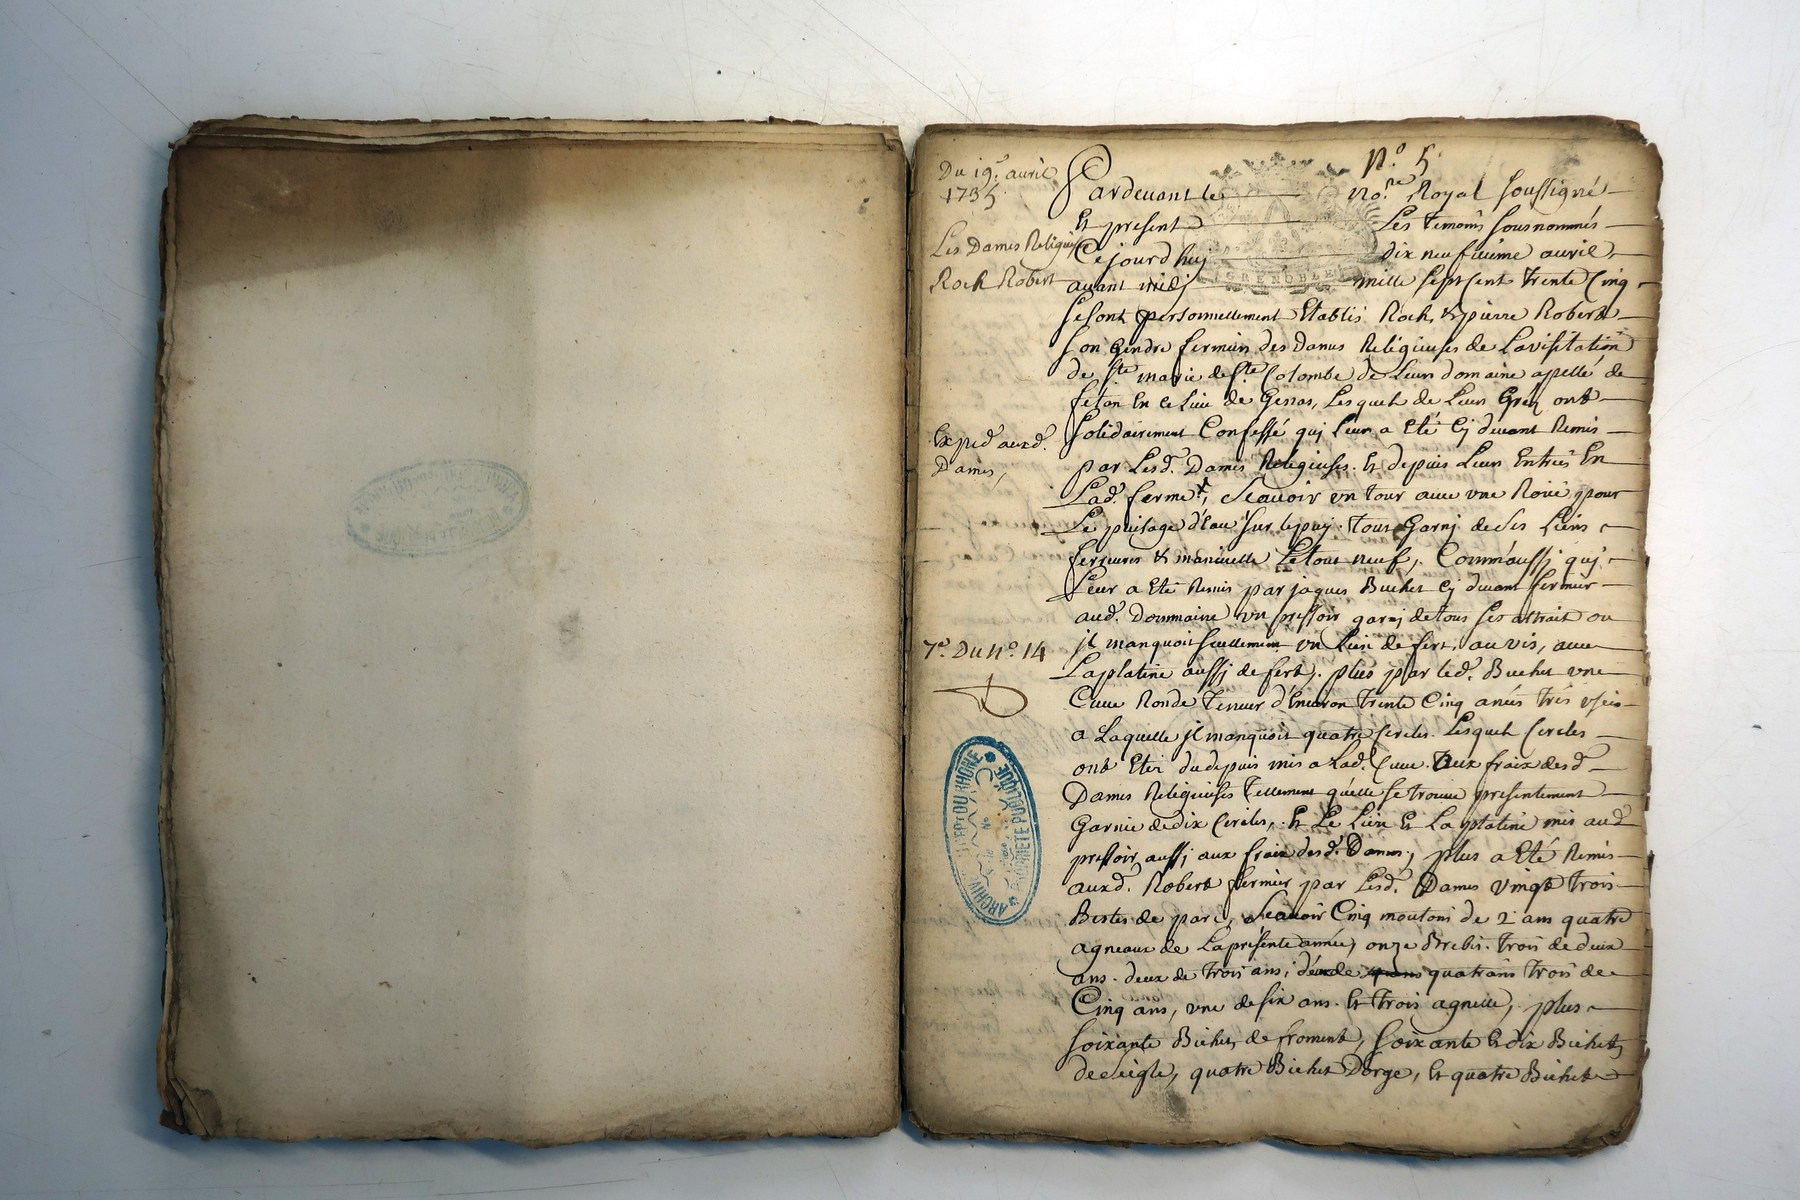 N.o 5
Du 19.e avril
1735
Les Dames Religieu
Roch Robert
Exped aux d.
Dames,
7.e Du N.o 14
Pardevant le no.re Royal soussigné
Et present Les temoins sousnommés
Cejourd'huy dix neufvieme avril,
avant midy mille sept cent trente Cinq
GRENOBLE
se sont personnellement Etablis Roch, & pierre Robert
son Gendre fermiers des Dames Religieuses de La visitation
de s.te marie de s.te Colombe de Leur domaine apellé de
En ce Lieu de Genas, Lesquels de Leur Gré ont
solidairement Confessé quj Leur a Eté Cj devant Remis
par Lesd. Dames Religieuses. Et depuis Leur Entrée En
Lad. ferme, sçauoir un tour auec une Roüe pour
Le puisage d'eau sur le puy. tout Garnj de ses Liens
ferrures & maniuelle Le tout neuf, Comm'aussj quj
Leur a Eté Remis par jaques Buchet Cj devant fermier
aud. Dommaine un pressoir garnj de tous ses attrait ou
jl manquoit seullement un Lien de fert, au vis, auec
La platine aussj de fert, plus par led. Buchet une
Cuue Ronde teneur d'Enuiron trente Cinq anées très usée
a Laquelle jl manquoit quatre Cercles. Lesquels Cercles
ont Eté du depuis mis a Lad. Cuue. Aux fraix desd.
Dames Religieuses tellement qu'elle se trouue presentement
Garnie de dix Cercles, Et Le Lien Et La platine mis aud
pressoir, aussj aux fraix desd. Dames, plus a Eté Remis
auxd. Robert fermier par Lesd. Dames vingt trois
Bestes de parc, sçauoir Cinq moutons de 2 ans quatre
agneaux de La presente année, onze Brebis. trois de deux
ans. deux de trois ans, deux de quatr'ans trois de
Cinq ans, une de six ans. Et trois agnelle, plus
soixante Bichets de froment, soixante Et dix Bichets
de seigle, quatre Bichet D'orge, Et quatre Bichets
ARCHIV DEP.T DU RHONE
PROPRIETE PUBLIQUE